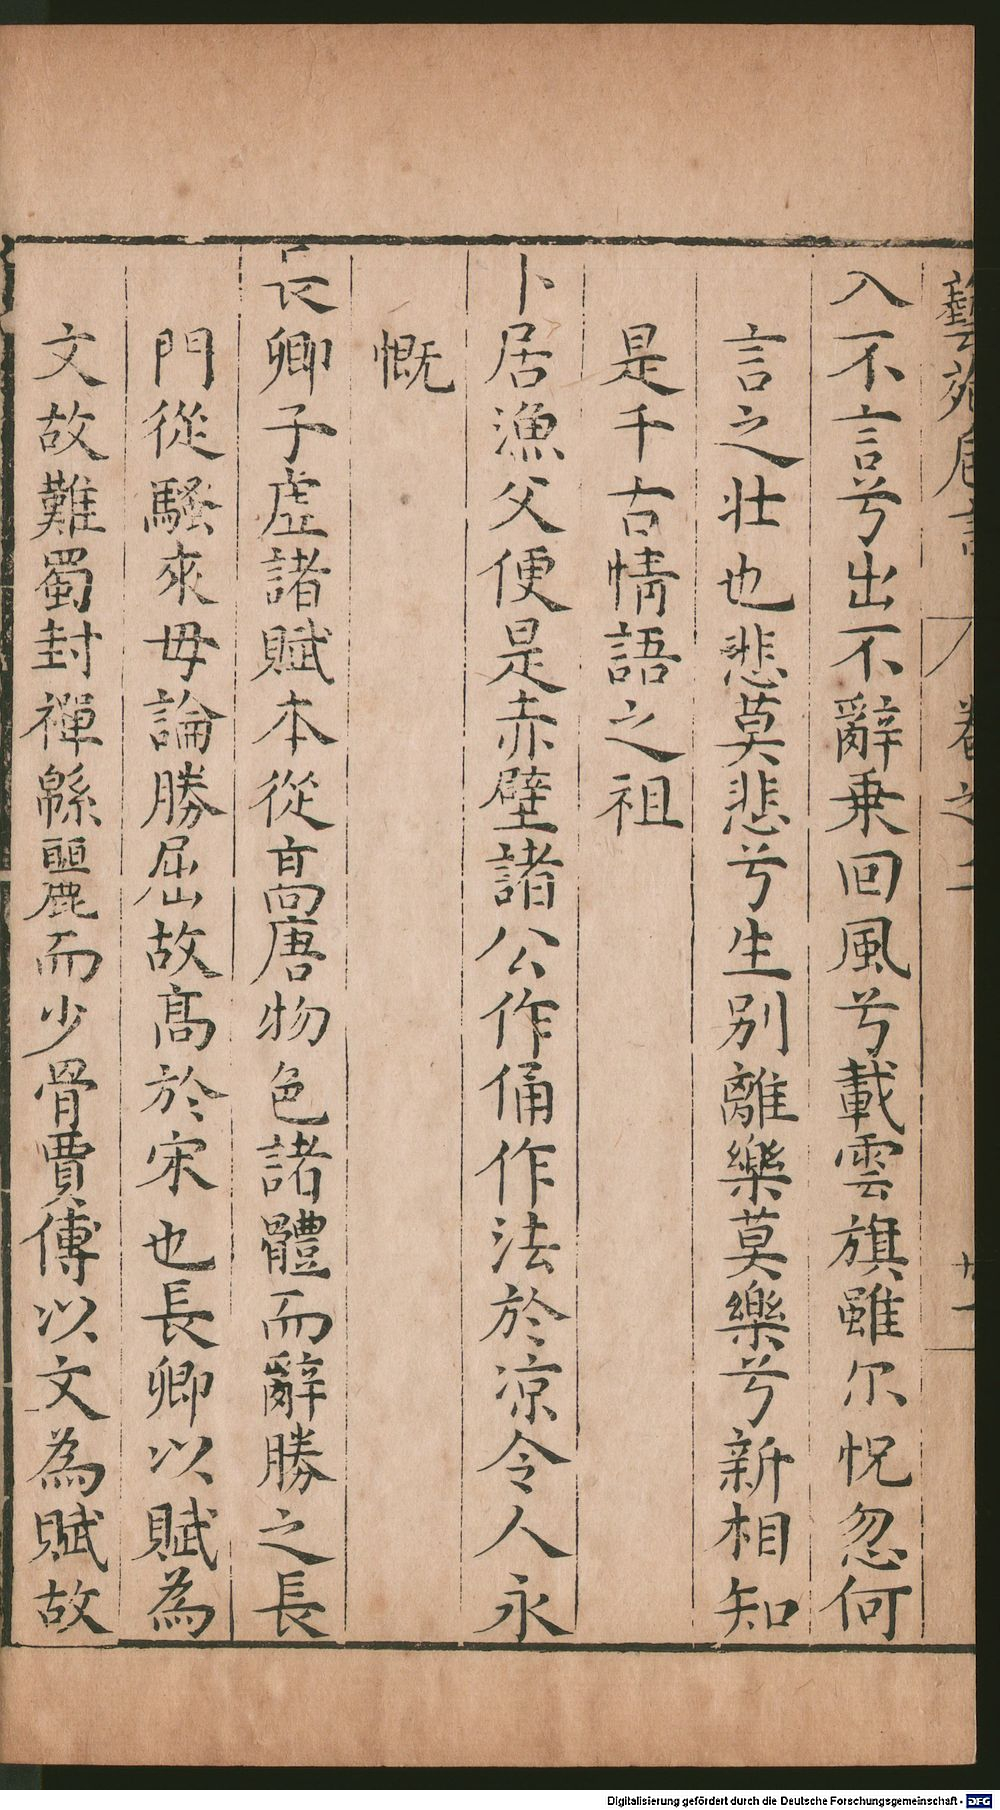 藝苑卮言 卷之二 廿一
入不言兮出不辭乗回風兮載雲旗雖尔怳忽何
言之壮也悲莫悲兮生别離樂莫樂兮新相知
是千古情語之祖
卜居漁父便是赤壁諸公作俑作法於凉令人永
慨
長卿子虚諸賦本從髙唐物色諸體而辭勝之長
門從騷來毋論勝屈故髙於宋也長卿以賦為
文故難蜀封禪緜麗而少骨賈傅以文為賦故
Digitalisierung gefördert durch die Deutsche Forschungsgemeinschaft - DFG